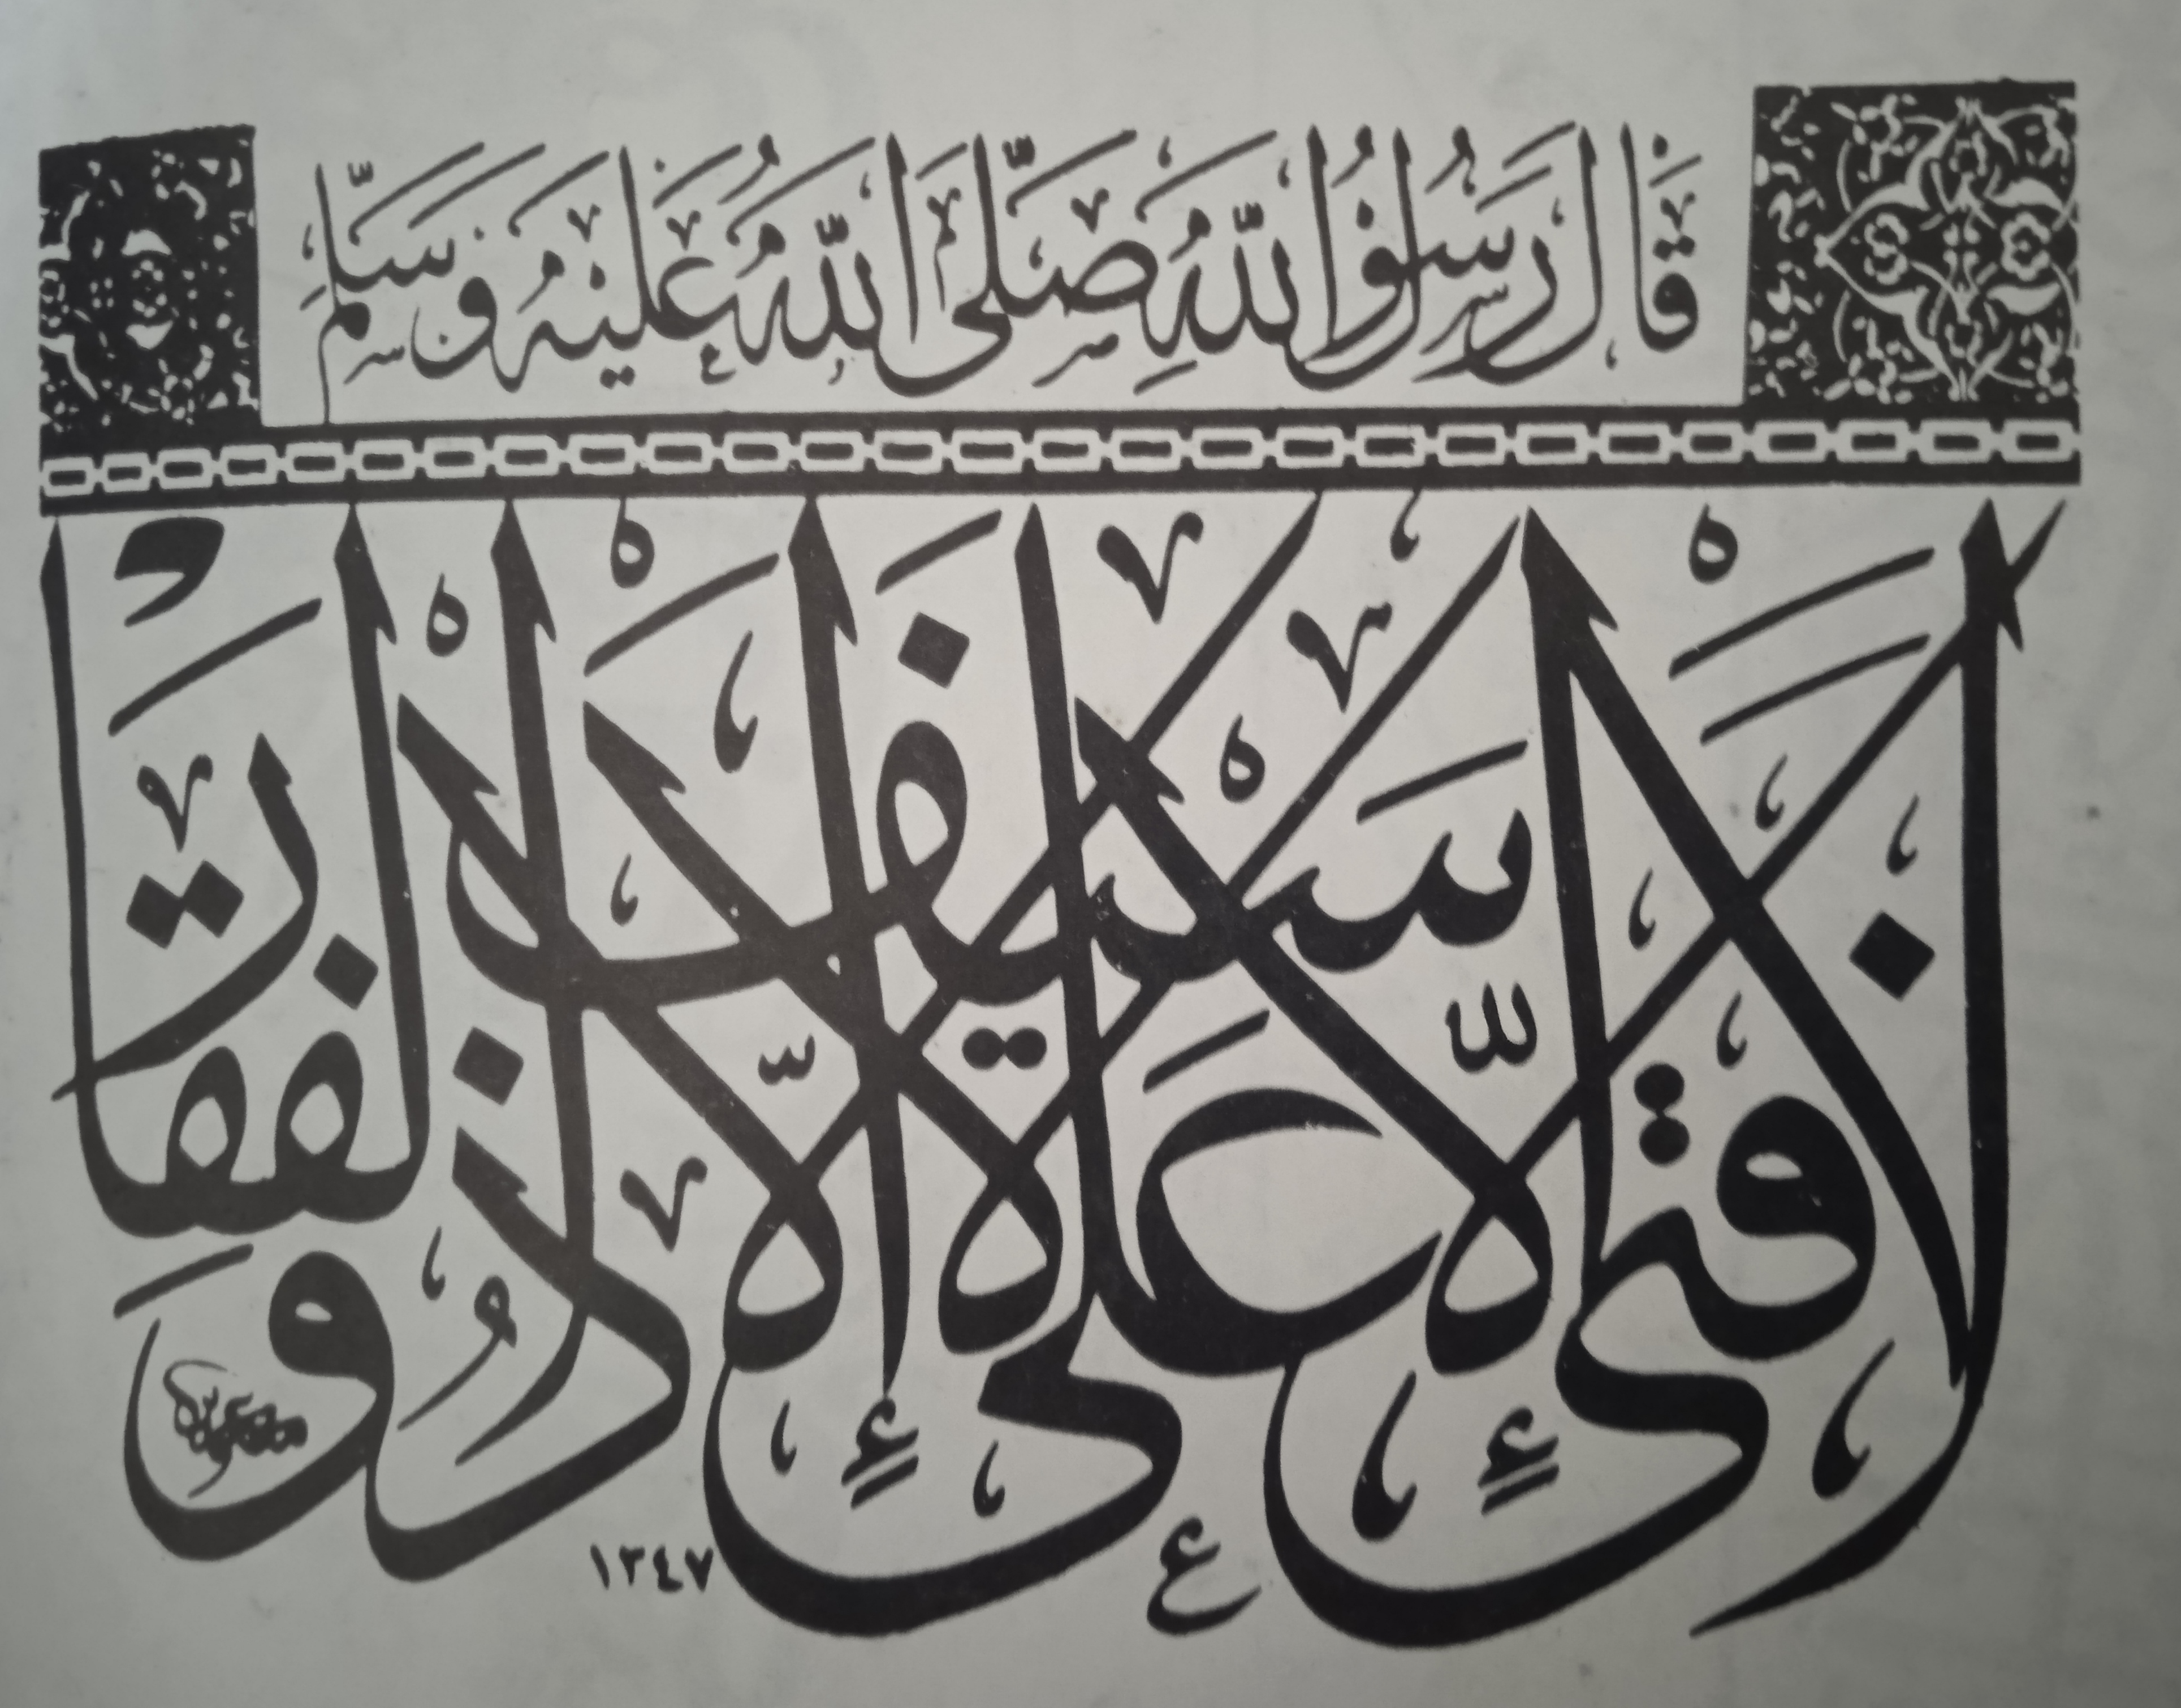 قَالَ رَسُولُ اللّٰهِ صَلَّى اللّٰهُ عَلَيْهِ وَسَلَّمَ
لَا فَتٰى إِلَّا عَلِىّ لَا سَيْفَ إِلَّا ذُو الْفَقَارْ
١٣٤٧